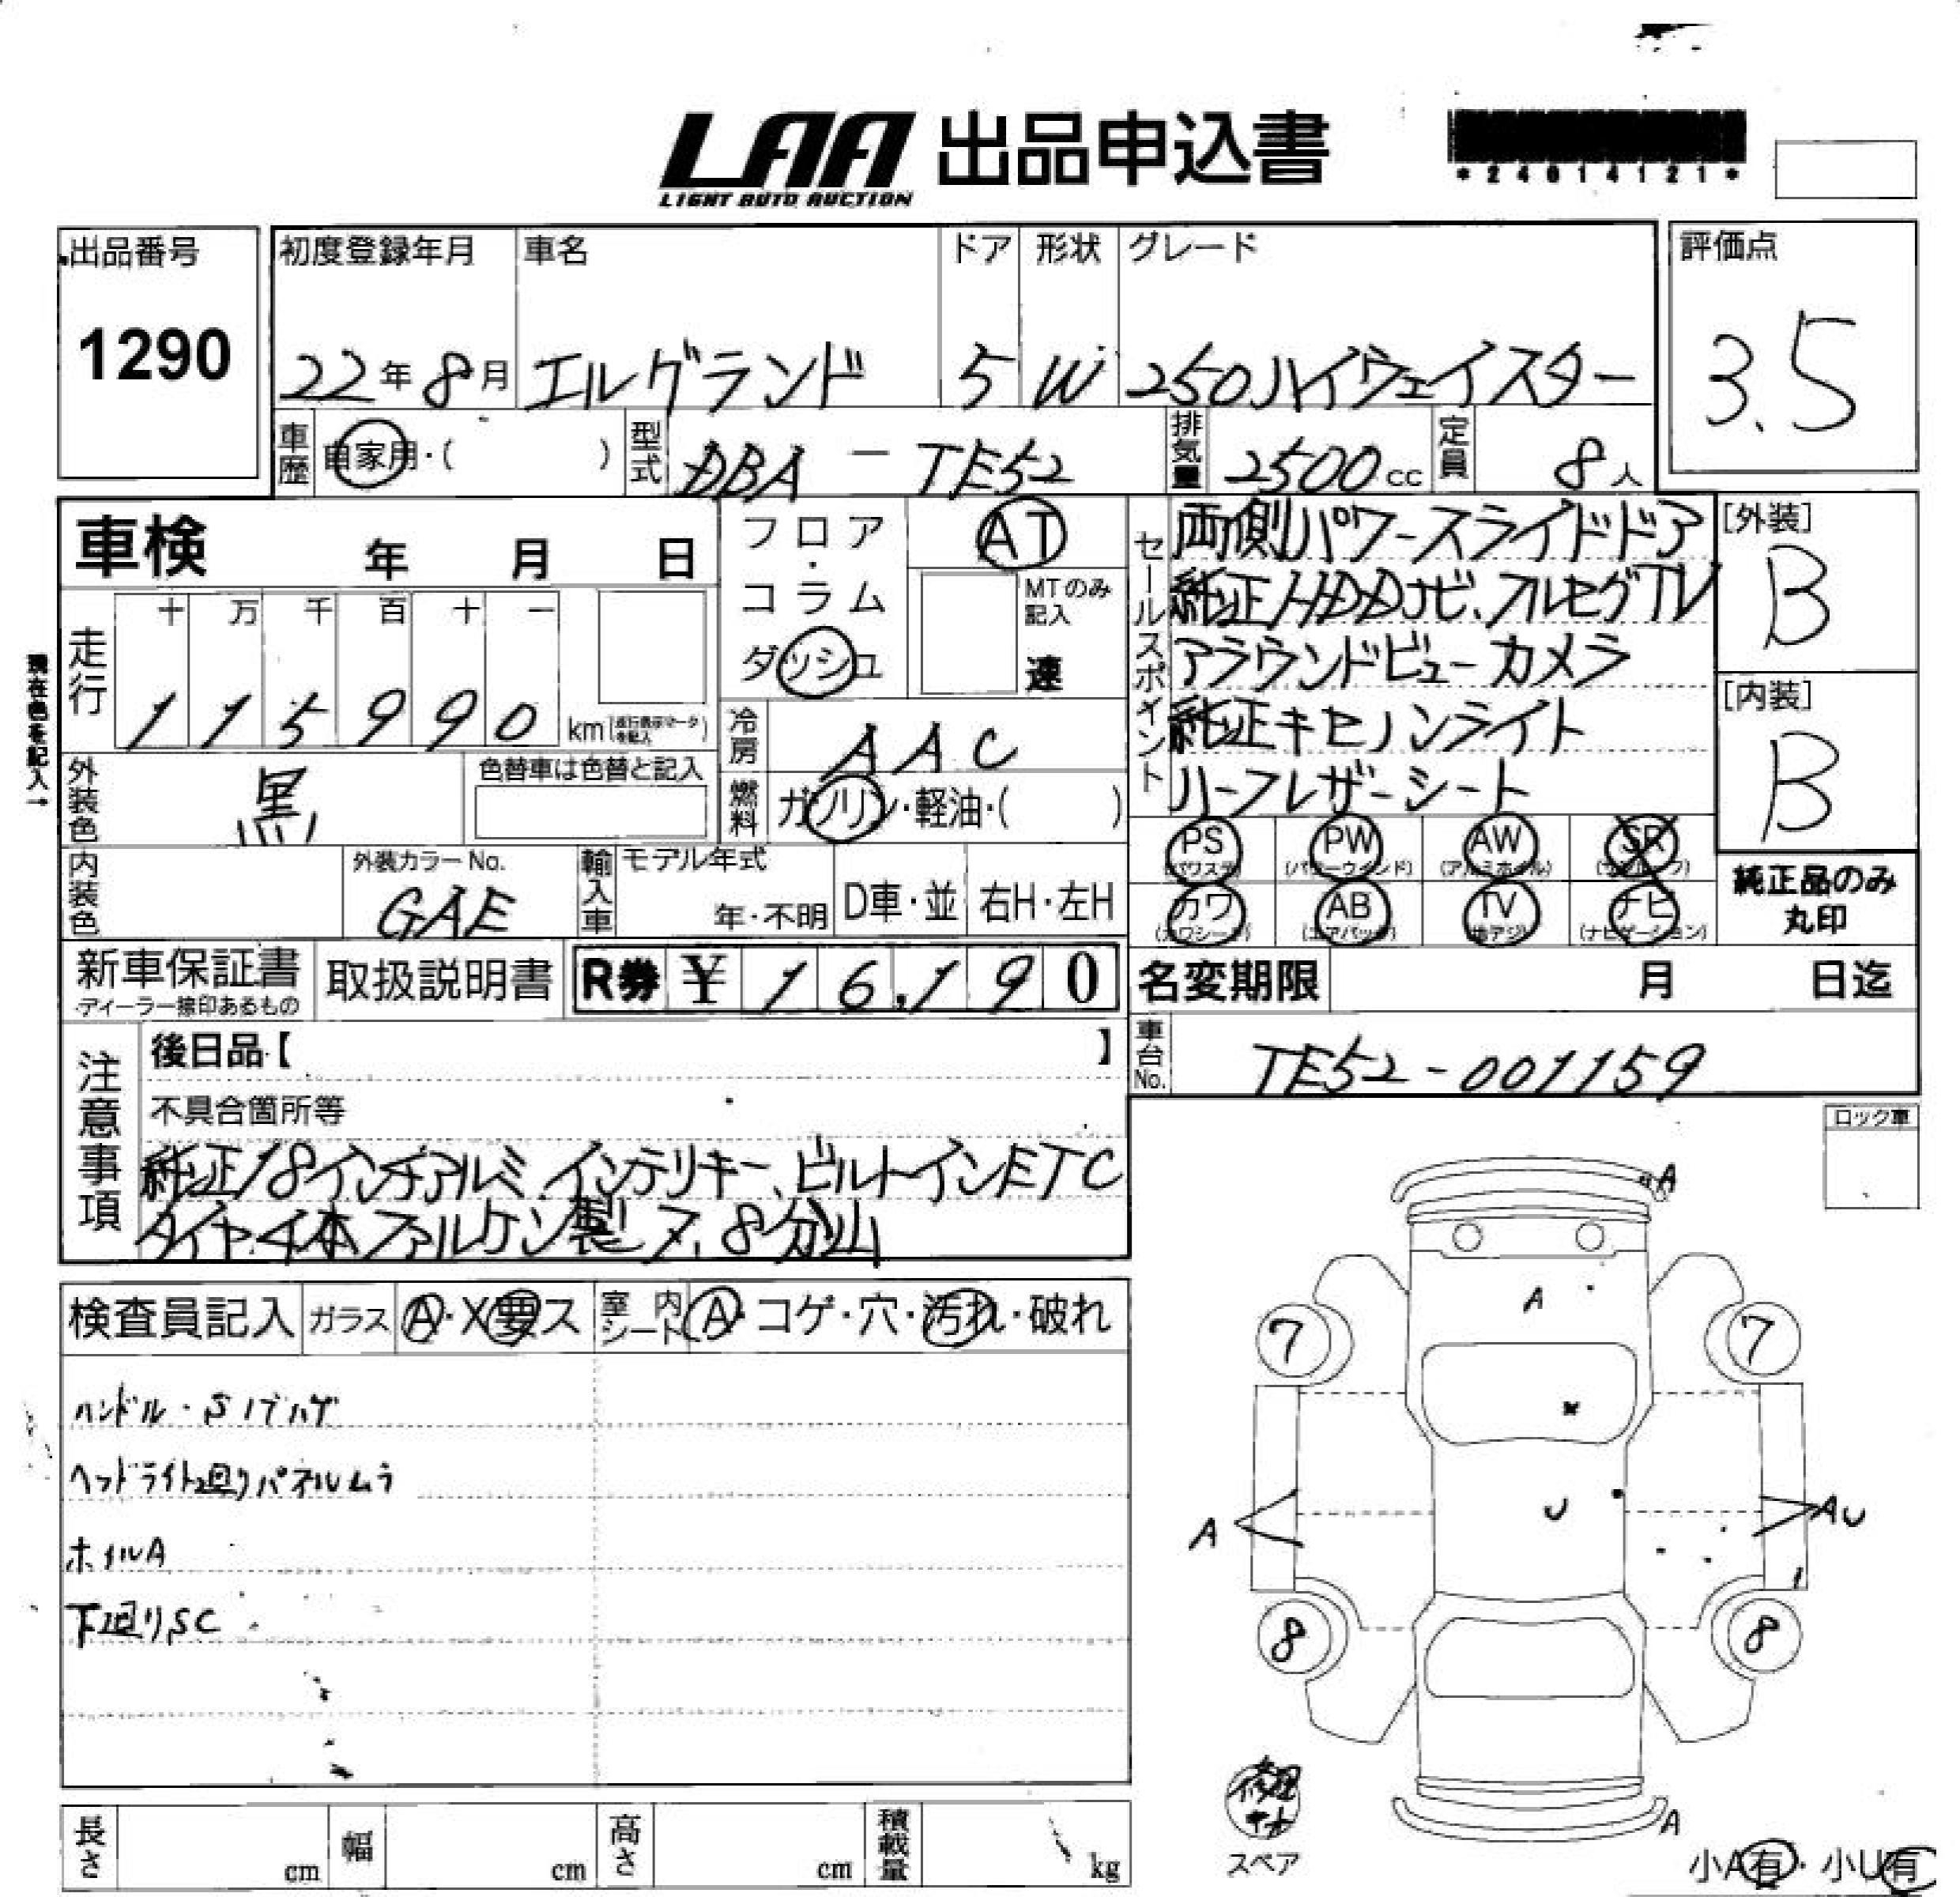 LAA 出品申込書
LIGHT AUTO AUCTION
*24014121*
出品番号
1290
初度登録年月
22年8月
車名
エルグランド
ドア
5
形状
W
グレード
250ハイウェイスター
評価点
3.5
車歴 自家用・( )
型式 DBA-TE52
排気量 2500cc
定員 8人
車検 年 月 日
フロア・コラム
ダッシュ
AT
MTのみ記入
速
走行
十 万 千 百 十 一
1 1 5 9 9 0 km
現在色を記入→
冷房 AAC
燃料 ガソリン・軽油・( )
外装色 黒
色替車は色替と記入
内装色
外装カラーNo.
GAE
輸入車 モデル年式
年・不明
D車・並
右H・左H
セールスポイント
両側パワースライドドア
純正HDDナビ、フルセグTV
アラウンドビューカメラ
純正キセノンライト
ハーフレザーシート
[外装]
B
[内装]
B
PS (パワステ)
PW (パワーウインド)
AW (アルミホイル)
SR (サンルーフ)
カワ (カワシート)
AB (エアバック)
TV (地デジ)
ナビ (ナビゲーション)
純正品のみ
丸印
新車保証書
ディーラー捺印あるもの
取扱説明書
R券 ¥ 16,190
名変期限 月 日迄
車台No. TE52-001159
注意事項
後日品【 】
不具合箇所等
純正18インチアルミ、インテリキー、ビルトインETC
タイヤ4本ファルケン製7、8分山
ロック車
検査員記入
ガラス A・X要ス
室内シート A・コゲ・穴・汚れ・破れ
ハンドル・Sノブハゲ
ヘッドライト廻りパネルムラ
ホイルA
下廻りSC
A
A
7 7
U
A AU
8 8
A
修理キット
スペア
小A有・小U有
長さ cm
幅 cm
高さ cm
積載量 kg